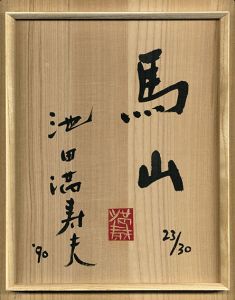 馬山
23/30
満寿
池田満寿夫
'90